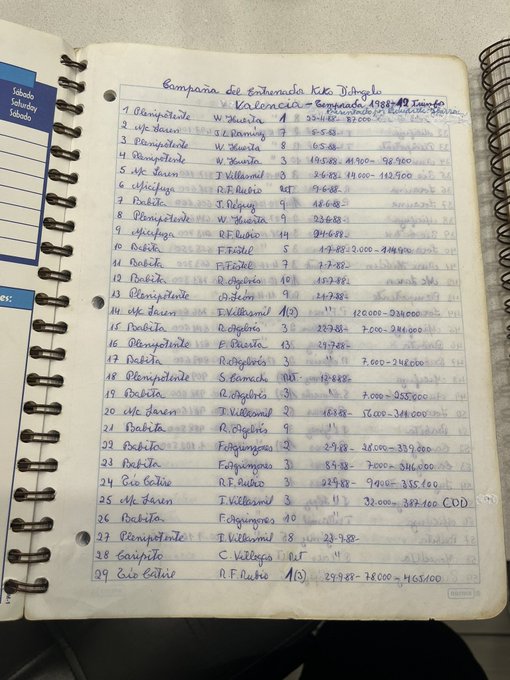 Sábado
Saturday
Sábado
es:
Campaña del Entrenador Kiko D'Angelo
Valencia - Temporada 1988-12 Triunfos
1 Plenipotente W. Huerta 1 87.000
2 Mc Laren J.L. Ramirez 7 5-5-88-
3 Plenipotente W. Huerta 8 6-5-88
4 Plenipotente W. Huerta 3 19-5-88- 11.900- 98.900
5 Mc Laren I. Villasmil 3 2-6-88- 14.000- 112.900
6 Micifuza R.F. Rubio Ret 9-6-88-
7 Babita J. 9 18-6-88-
8 Plenipotente W. Huerta 9 23-6-88-
9 Micifuza R.F. Rubio 14 24-6-88-
10 Babita F. Fistel 5 1-7-88- 2.000- 114.900
11 Babita F. Fistel 7 7-7-88-
12 Babita R. Agelvis 10 15-7-88-
13 Plenipotente A. León 9 21-7-88-
14 Mc Laren I. Villasmil 1(2) " 120.000-234.000
15 Babita R. Agelvis 3 22-7-88- 7.000-241.000
16 Plenipotente E. Puerta 13 29-7-88-
17 Babita R. Agelvis 3 " 7.000-248.000
18 Plenipotente S. Camacho Ret 12-8-88-
19 Babita R. Agelvis 3 " 7.000-255.000
20 Mc Laren I. Villasmil 2 18-8-88- 56.000-311.000
21 Babita R. Agelvis 9 "
22 Babita 2 2-9-88- 28.000-339.000
23 Babita 3 8-9-88- 7.000- 346.000
24 Tio Catire R.F. Rubio 3 22-9-88- 9.100- 355.100
25 Mc Laren I. Villasmil 3 " 32.000- 387.100 COD
26 Babita 10 "
27 Plenipotente I. Villasmil 8 23-9-88-
28 Caripito C. Villegas Ret "
29 Tio Catire R.F. Rubio 1(3) 29-9-88- 78.000-465.100
norma